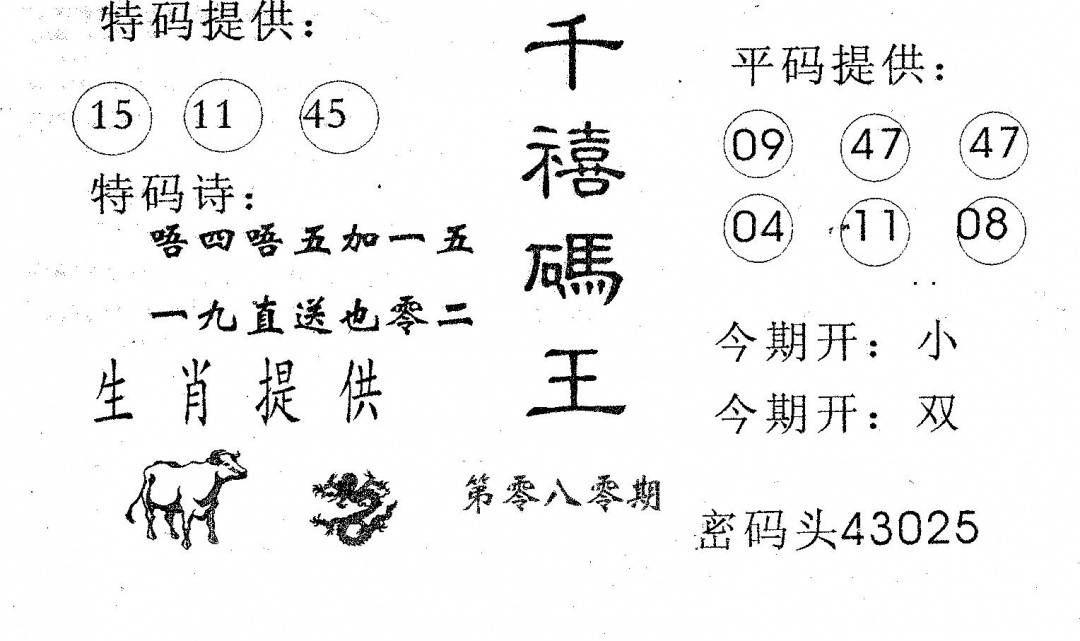 特码提供：
15 11 45
特码诗：
唔四唔五加一五
一九直送也零二
生肖提供
千禧碼王
第零八零期
平码提供：
09 47 47
04 11 08
今期开：小
今期开：双
密码头43025